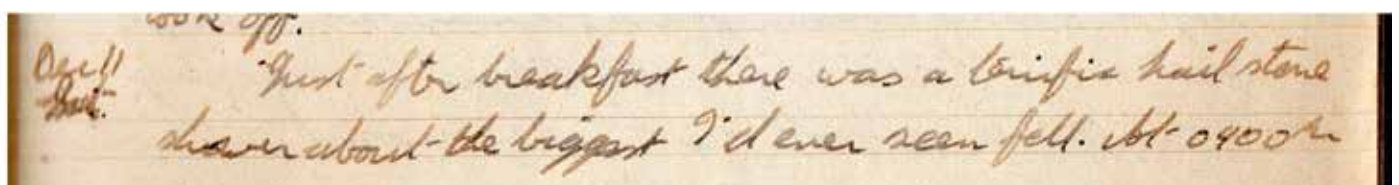 took off.
Dec 11 Just after breakfast there was a terrific hail stone
shower about the biggest I'd ever seen fell. At 0900 hr